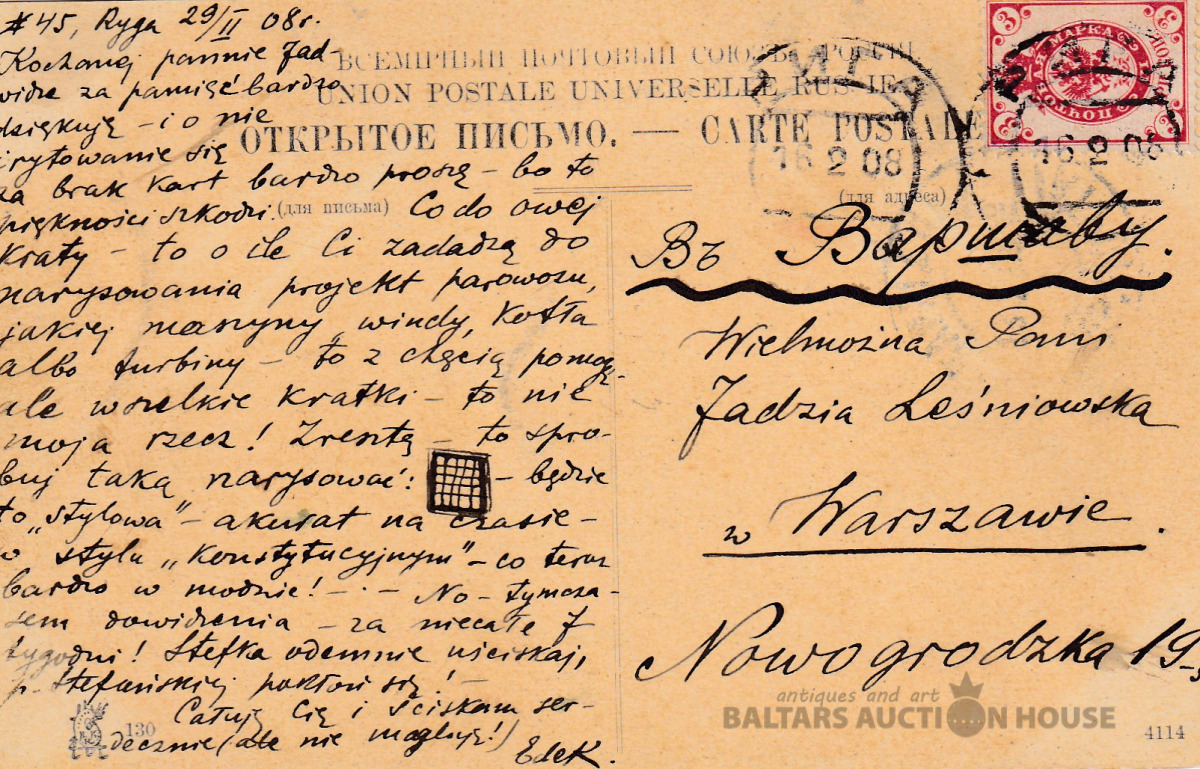 #45, Ryga 29/II 08r.
Kochanej pannie Jad-
widze za pamięć bardzo
dziękuję – i o nie
irytowanie się
za brak kart bardzo proszę – bo to
piękności szkodzi. Co do owej
Kraty – to o ile Ci zadadzą do
narysowania projekt parowozu,
jakiej maszyny, windy, Kotła
albo turbiny – to z chęcią pomogę,
ale wszelkie Kratki – to nie
moja rzecz! Zresztą – to spró-
buj taką narysować: – będzie
to „stylowa” – akurat na czasie –
w stylu „Konstytucyjnym” – co teraz
bardzo w modzie! – · – No – tymcza-
sem dowidzenia – za niecałe 7
tygodni! Stefka odemnie uściskaj,
p. Stefańskiej pokłoń się! –
Całuję Cię i ściskam ser-
decznie (ale nie!)
Edek.
ВСЕМІРНЫЙ ПОЧТОВЫЙ СОЮЗЪ. РОССІЯ
UNION POSTALE UNIVERSELLE. RUSSIE
ОТКРЫТОЕ ПИСЬМО. — CARTE POSTALE
(для письма)
(для адреса)
16 2 08
16 2 08
МАРКА
3
3
3
Въ Варшаву.
Wielmożna Pani
Jadzia Leśniowska
w Warszawie.
Nowogrodzka 19
130
4114
antiques and art
BALTARS AUCTION HOUSE